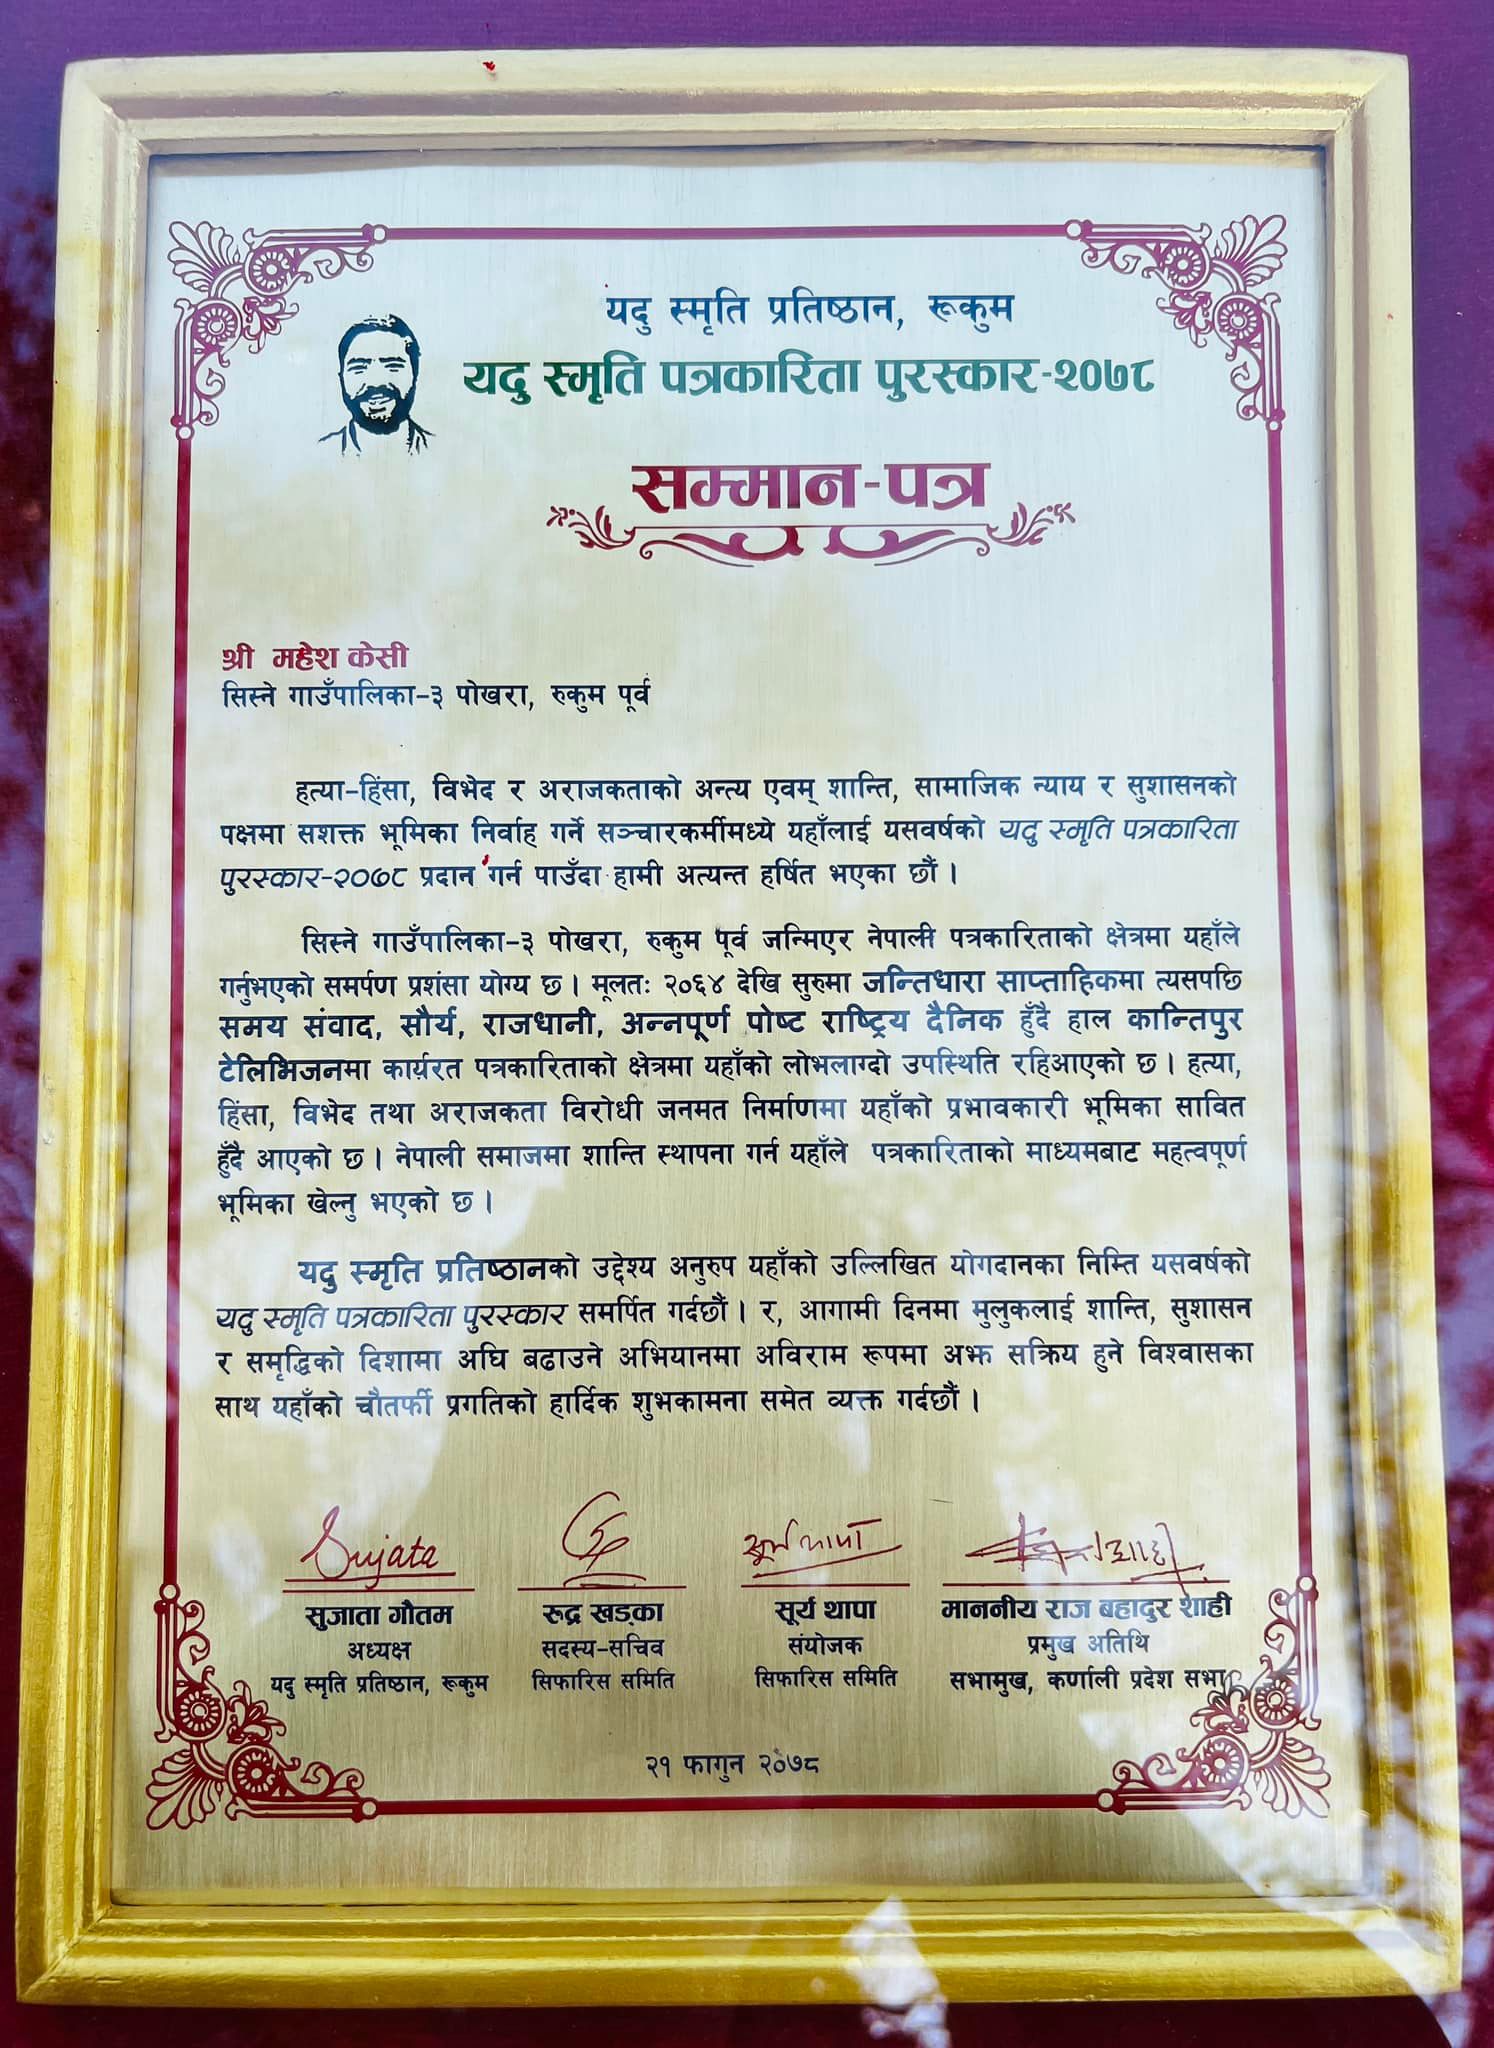 यदु स्मृति प्रतिष्ठान, रूकुम
यदु स्मृति पत्रकारिता पुरस्कार-२०७८
सम्मान-पत्र
श्री महेश केसी
सिस्ने गाउँपालिका-३ पोखरा, रुकुम पूर्व
हत्या-हिंसा, विभेद र अराजकताको अन्त्य एवम् शान्ति, सामाजिक न्याय र सुशासनको
पक्षमा सशक्त भूमिका निर्वाह गर्ने सञ्चारकर्मीमध्ये यहाँलाई यसवर्षको यदु स्मृति पत्रकारिता
पुरस्कार-२०७८ प्रदान गर्न पाउँदा हामी अत्यन्त हर्षित भएका छौं ।
सिस्ने गाउँपालिका-३ पोखरा, रुकुम पूर्व जन्मिएर नेपाली पत्रकारिताको क्षेत्रमा यहाँले
गर्नुभएको समर्पण प्रशंसा योग्य छ । मूलतः २०६४ देखि सुरुमा जन्तिधारा साप्ताहिकमा त्यसपछि
समय संवाद, सौर्य, राजधानी, अन्नपूर्ण पोष्ट राष्ट्रिय दैनिक हुँदै हाल कान्तिपुर
टेलिभिजनमा कार्यरत पत्रकारिताको क्षेत्रमा यहाँको लोभलाग्दो उपस्थिति रहिआएको छ । हत्या,
हिंसा, विभेद तथा अराजकता विरोधी जनमत निर्माणमा यहाँको प्रभावकारी भूमिका सावित
हुँदै आएको छ । नेपाली समाजमा शान्ति स्थापना गर्न यहाँले पत्रकारिताको माध्यमबाट महत्वपूर्ण
भूमिका खेल्नु भएको छ ।
यदु स्मृति प्रतिष्ठानको उद्देश्य अनुरुप यहाँको उल्लिखित योगदानका निम्ति यसवर्षको
यदु स्मृति पत्रकारिता पुरस्कार समर्पित गर्दछौं । र, आगामी दिनमा मुलुकलाई शान्ति, सुशासन
र समृद्धिको दिशामा अघि बढाउने अभियानमा अविराम रूपमा अझ सक्रिय हुने विश्वासका
साथ यहाँको चौतर्फी प्रगतिको हार्दिक शुभकामना समेत व्यक्त गर्दछौं ।
Sujata
सूर्य थापा
सुजाता गौतम
अध्यक्ष
यदु स्मृति प्रतिष्ठान, रूकुम
रुद्र खड्का
सदस्य-सचिव
सिफारिस समिति
सूर्य थापा
संयोजक
सिफारिस समिति
माननीय राज बहादुर शाही
प्रमुख अतिथि
सभामुख, कर्णाली प्रदेश सभा
२१ फागुन २०७८